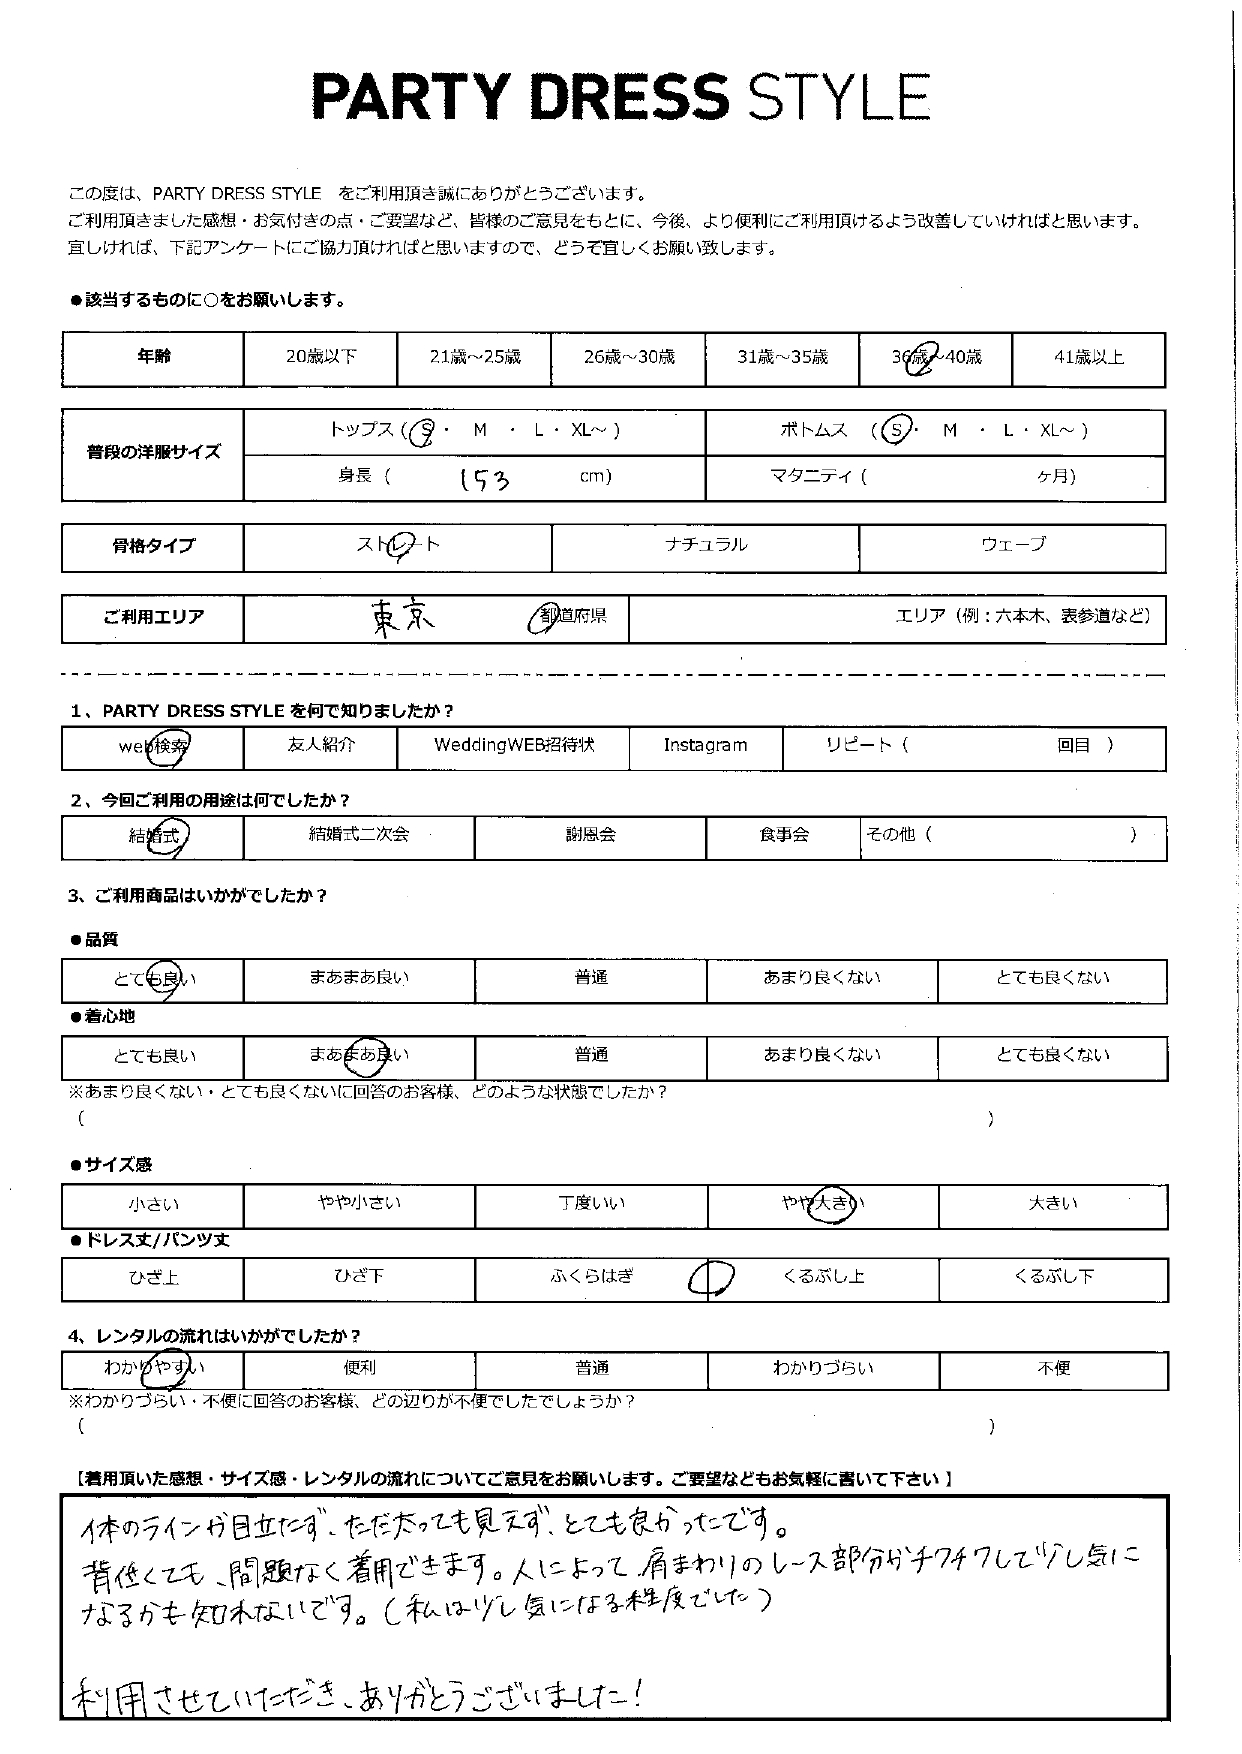 PARTY DRESS STYLE
この度は、PARTY DRESS STYLE をご利用頂き誠にありがとうございます。
ご利用頂きました感想・お気付きの点・ご要望など、皆様のご意見をもとに、今後、より便利にご利用頂けるよう改善していければと思います。
宜しければ、下記アンケートにご協力頂ければと思いますので、どうぞ宜しくお願い致します。
●該当するものに○をお願いします。
年齢 20歳以下 21歳～25歳 26歳～30歳 31歳～35歳 36歳～40歳 41歳以上
普段の洋服サイズ トップス（S・ M ・ L・ XL～ ） ボトムス （S・ M ・ L・ XL～ ）
身長（ 153 cm） マタニティ（ ヶ月）
骨格タイプ ストレート ナチュラル ウェーブ
ご利用エリア 東京 都道府県 エリア（例：六本木、表参道など）
1、PARTY DRESS STYLEを何で知りましたか？
web検索 友人紹介 WeddingWEB招待状 Instagram リピート（ 回目 ）
2、今回ご利用の用途は何でしたか？
結婚式 結婚式二次会 謝恩会 食事会 その他（ ）
3、ご利用商品はいかがでしたか？
●品質
とても良い まあまあ良い 普通 あまり良くない とても良くない
●着心地
とても良い まあまあ良い 普通 あまり良くない とても良くない
※あまり良くない・とても良くないに回答のお客様、どのような状態でしたか？
（ ）
●サイズ感
小さい やや小さい 丁度いい やや大きい 大きい
●ドレス丈/パンツ丈
ひざ上 ひざ下 ふくらはぎ くるぶし上 くるぶし下
4、レンタルの流れはいかがでしたか？
わかりやすい 便利 普通 わかりづらい 不便
※わかりづらい・不便に回答のお客様、どの辺りが不便でしたでしょうか？
（ ）
【着用頂いた感想・サイズ感・レンタルの流れについてご意見をお願いします。ご要望などもお気軽に書いて下さい】
体のラインが目立たず、ただ太っても見えず、とても良かったです。
背低くても、問題なく着用できます。人によって、肩まわりのレース部分がチクチクして少し気に
なるかも知れないです。（私は少し気になる程度でした）
利用させていただき、ありがとうございました！